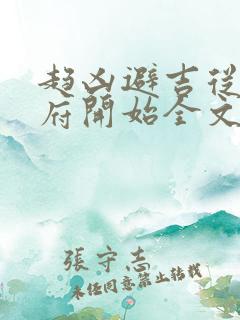 趋凶避吉從
府開始全文
張守志
未經同意禁止转載